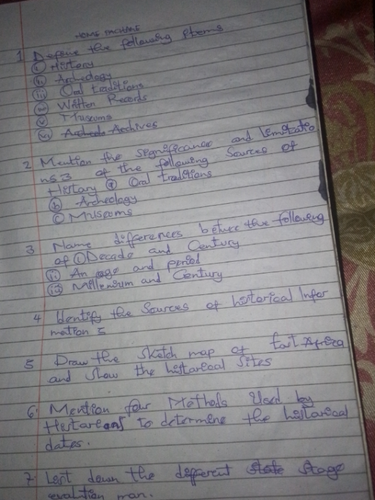 1 Define the following terms
(i) History
(ii) Archeology
(iii) Oral traditions
(iv) Written Records
(v) Museums
(vi) Archives
2 Mention the significance and limitatio
ns 3 of the following Sources of
History (a) Oral traditions
(b) Archeology
(c) Museums
3 Name differences between the following
of (i) Decade and Century
(ii) An age and period
(iii) Millenium and Century
4 Identify the Sources of historical Infor
mation 5
5 Draw the sketch map of East Africa
and show the historical Sites
6 Mention four Methods Used by
Historians to determine the historical
dates.
7 List down the different stage
evolution man.